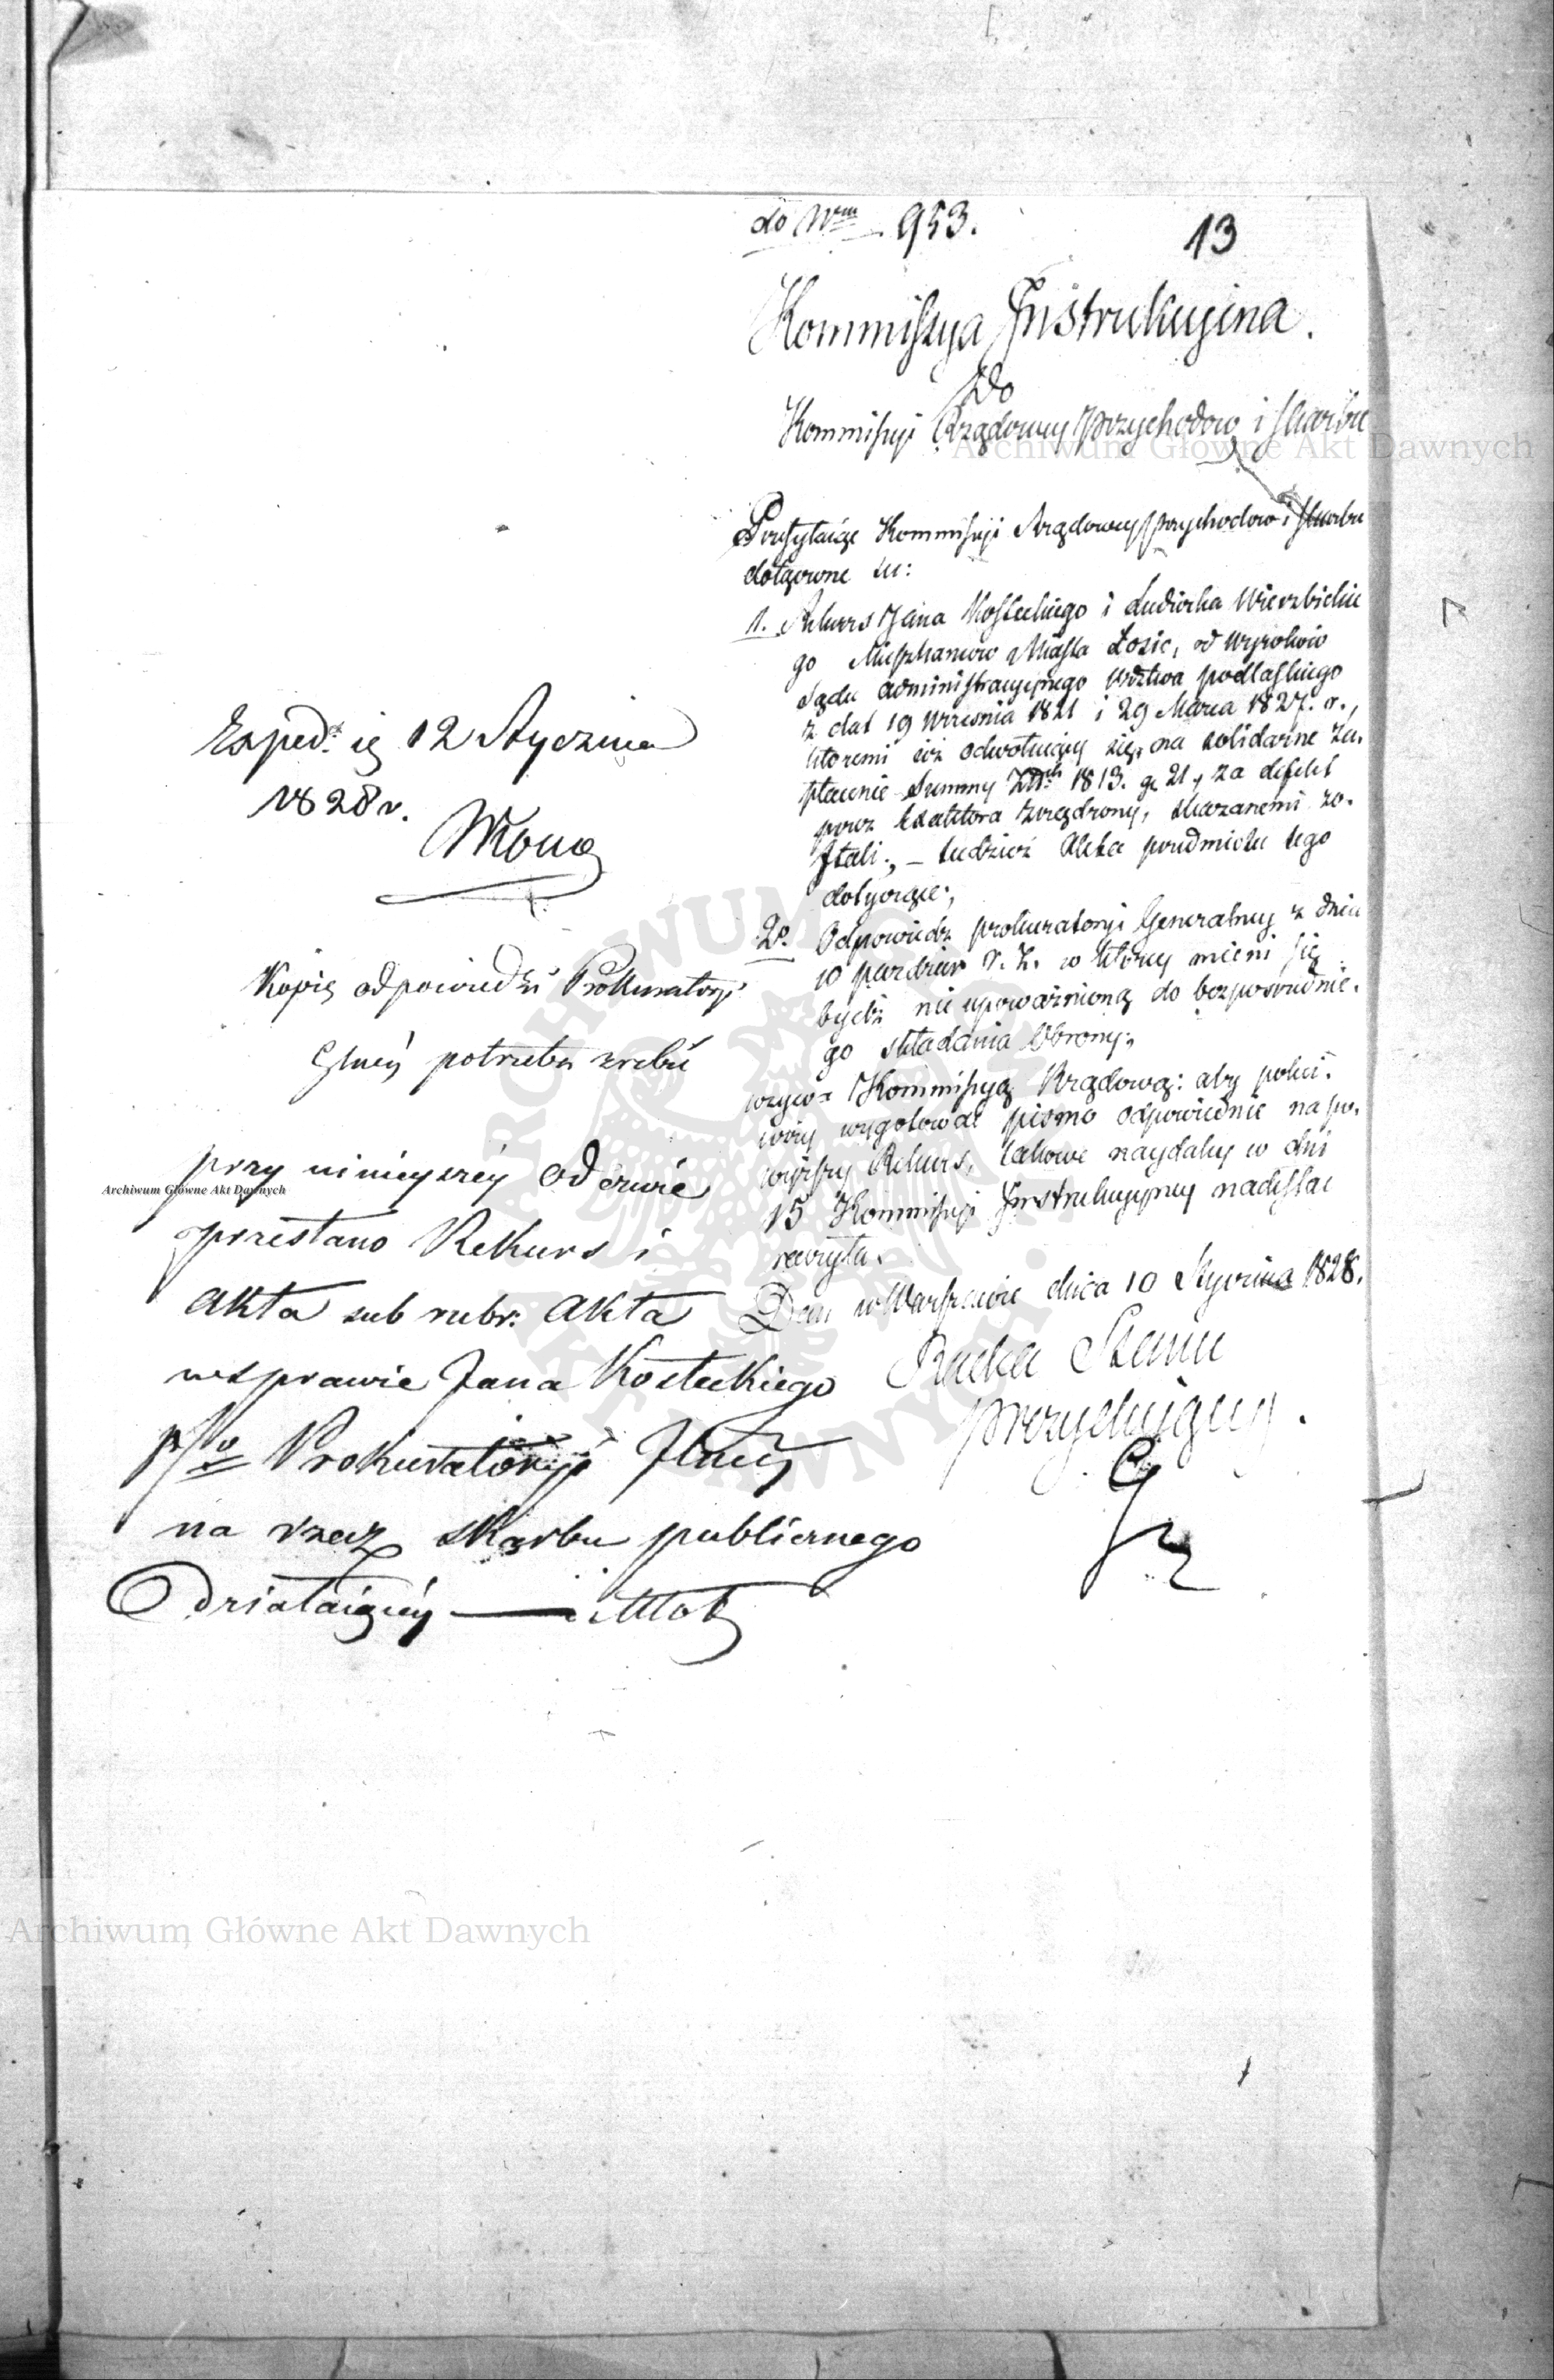 do Nrm 953.
13
Kommissya Instrukcyina.
Do
Kommissyi Rządowey Przychodow i Skarbu
Przesyłaiąc Kommissyi Rządowey Przychodow i Skarbu
dołączone tu:
1. Rekurs Jana Kosteckiego i Ludwika Wierzbickie
go Mieszkancow Miasta Łosic, od Wyrokow
Sądu administracyinego Wdztwa podlaskiego
z dat 19 Wrzesnia 1821 i 29 Marca 1827. r.,
ktoremi ciż odwołuiący się, na solidarne za-
płacenie Summy Złtch 1813. gr 21, za defekt
przez Exaktora zrządzony, skazanemi zo-
stali., – tudzież Akta przedmiotu tego
dotyczące;
2o. Odpowiedz prokuratoryi Generalney z dnia
10 pazdzier r. z. w ktorey mieni się
bydź nie upoważnioną do bezposrednie-
go składania Obrony;
wzywa Kommissyą Rządową: aby poleci-
wszy wygotować pismo odpowiednie na po-
wyższy Rekurs, takowe naydaley w dni
15 Kommissyi Instrukcyiney nadesłać
raczyła.
Dan w Warszawie dnia 10 Stycznia 1828.
Radca Stanu
prezyduiący.
Exped. ię 12 Stycznia
1828 r.
Kopię odpowiedzi Prokuratoryi
Glney potrzeba zrobić
przy ninieyszey Odezwie
przesłano Rekurs i
Akta sub rubr: Akta
w sprawie Jana Kosteckiego
p/ko Prokuratoryi Jlney
na rzecz skarbu publicznego
Działaiącey
Archiwum Główne Akt Dawnych
Archiwum Główne Akt Dawnych
Archiwum Główne Akt Dawnych
ARCHIWUM GŁÓWNE AKT DAWNYCH